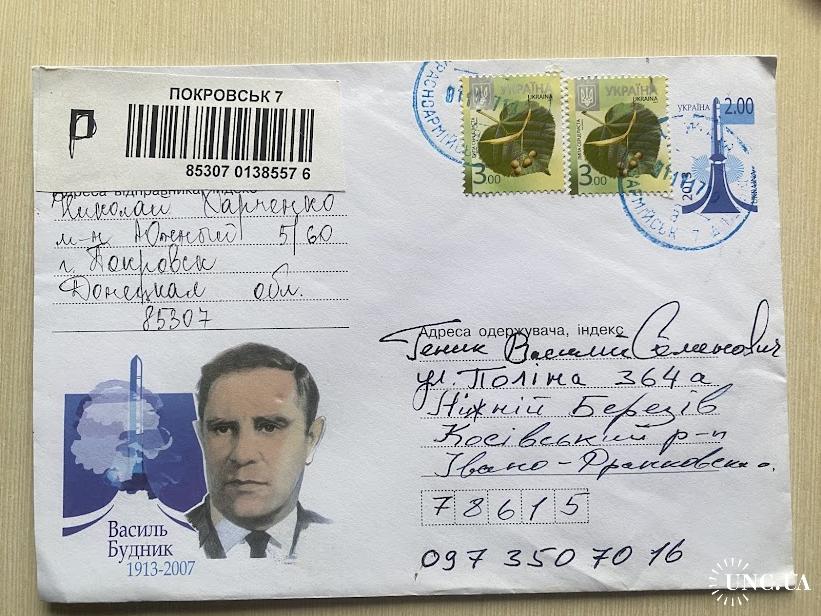 ПОКРОВСЬК 7
R
85307 0138557 6
Адреса відправника, індекс
Николай Харченко
м-н Южный 5/60
г. Покровск
Донецкая обл.
85307
УКРАЇНА
UKRAINA
3.00
УКРАЇНА
UKRAINA
3.00
УКРАЇНА 2.00
2013
Адреса одержувача, індекс
Геник Василий Семенович
ул. Поліна 364а
Ніжній Березів
Косівський р-н
Івано-Франковская о.
78615
097 350 70 16
Василь
Будник
1913-2007
UNC.UA